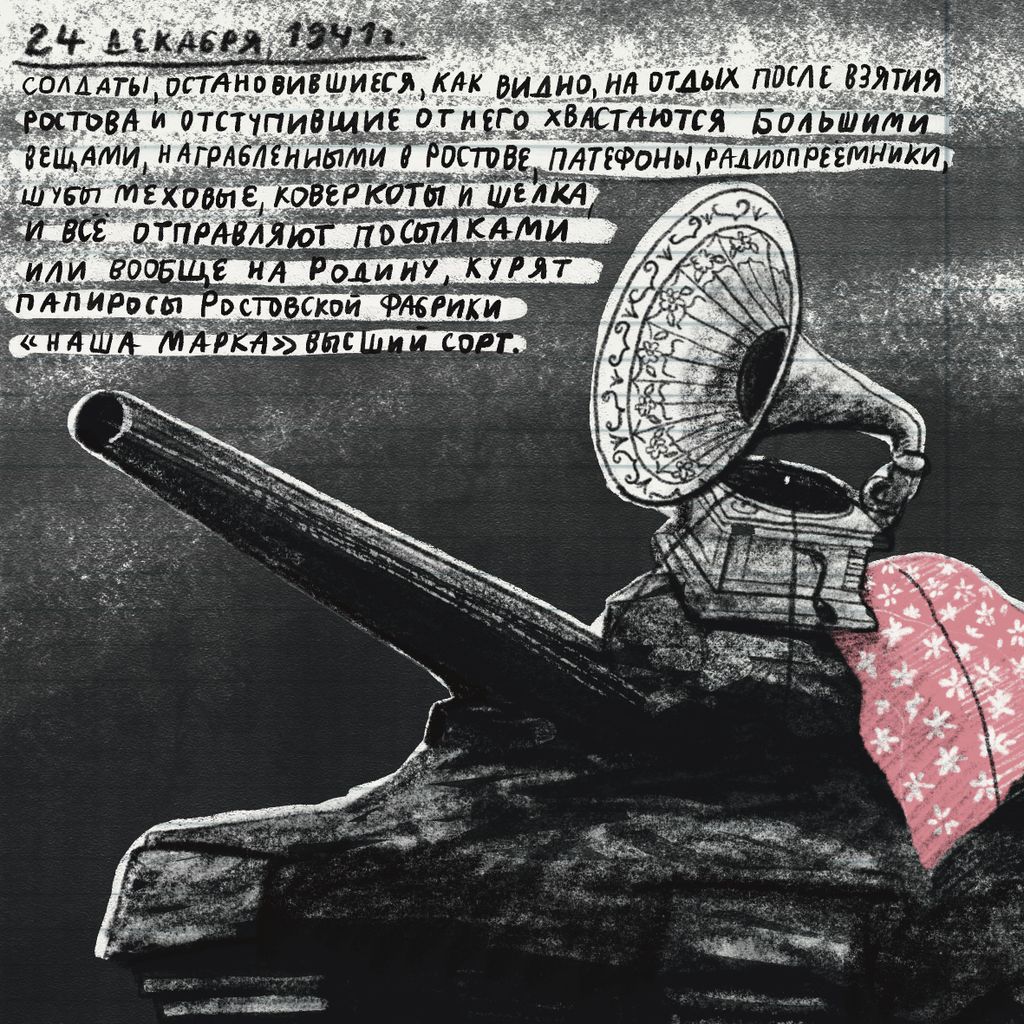 24 ДЕКАБРЯ, 1941г.
СОЛДАТЫ, ОСТАНОВИВШИЕСЯ, КАК ВИДНО, НА ОТДЫХ ПОСЛЕ ВЗЯТИЯ
РОСТОВА И ОТСТУПИВШИЕ ОТ НЕГО ХВАСТАЮТСЯ БОЛЬШИМИ
ВЕЩАМИ, НАГРАБЛЕННЫМИ В РОСТОВЕ, ПАТЕФОНЫ, РАДИОПРЕЕМНИКИ,
ШУБЫ МЕХОВЫЕ, КОВЕРКОТЫ И ШЕЛКА,
И ВСЁ ОТПРАВЛЯЮТ ПОСЫЛКАМИ
ИЛИ ВООБЩЕ НА РОДИНУ, КУРЯТ
ПАПИРОСЫ РОСТОВСКОЙ ФАБРИКИ
«НАША МАРКА» ВЫСШИЙ СОРТ.